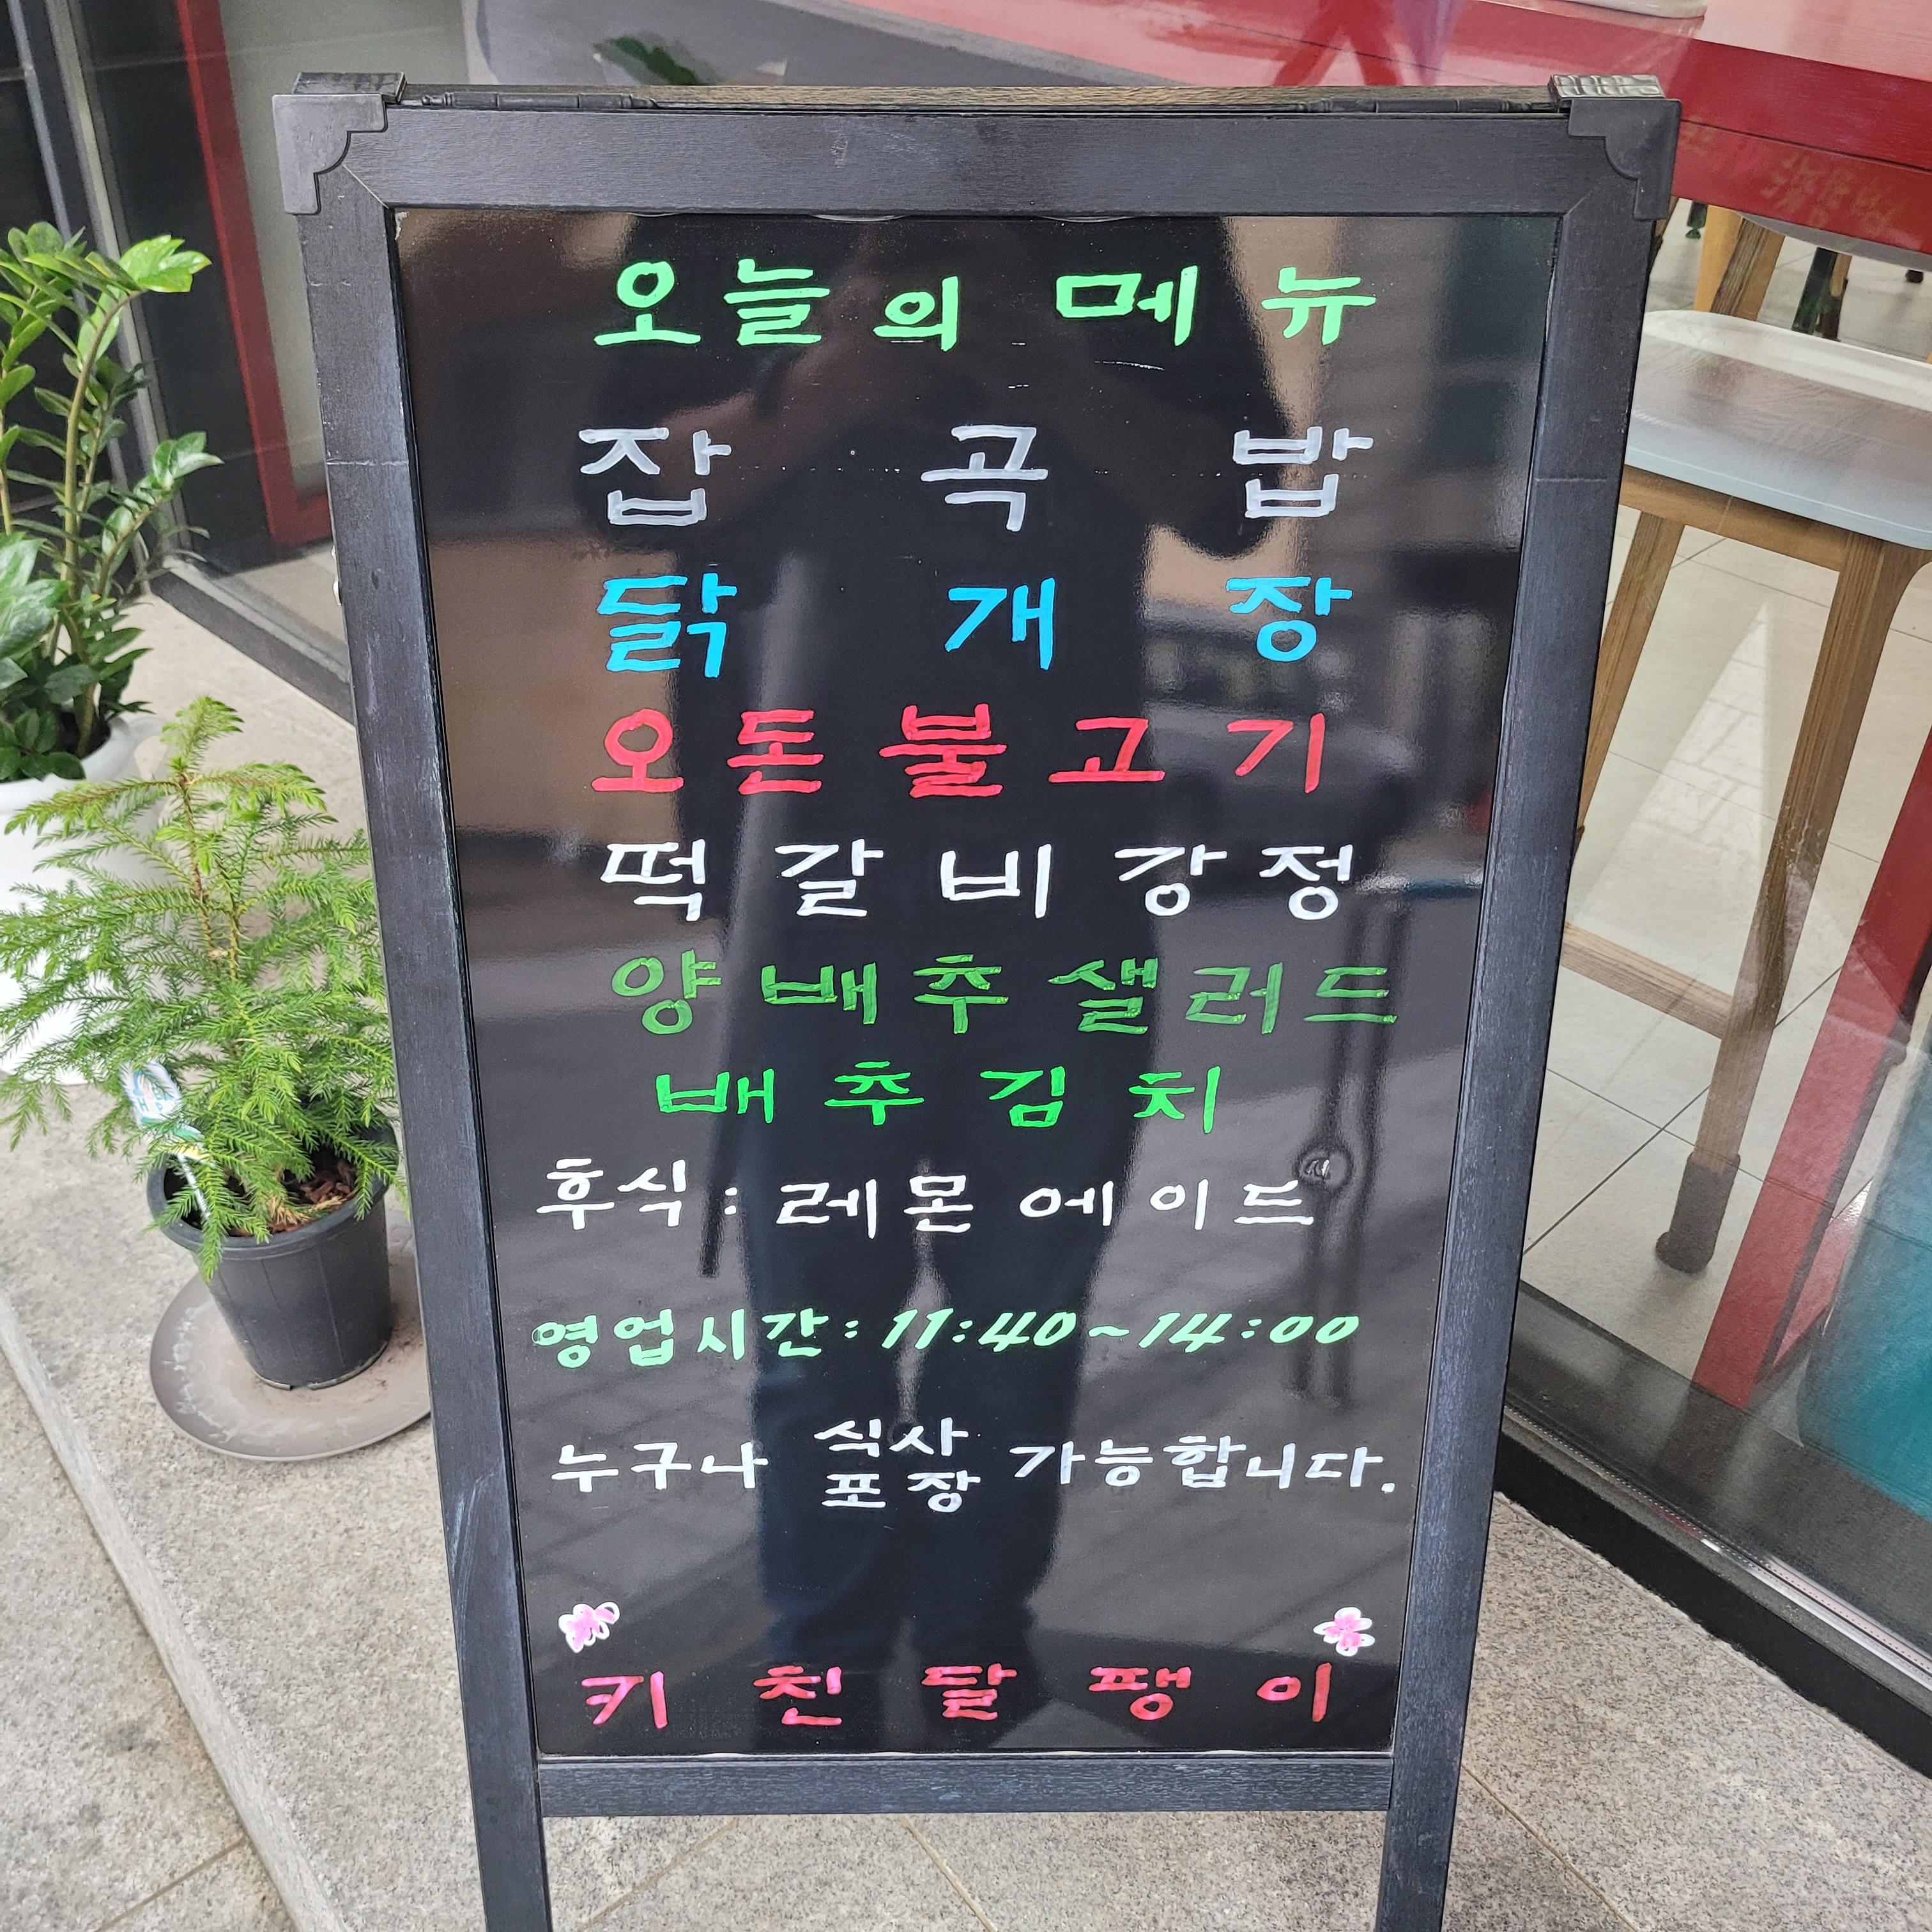 오늘의 메뉴
잡곡밥
닭개장
오돈불고기
떡갈비강정
양배추샐러드
배추김치
후식: 레몬에이드
영업시간: 11:40~14:00
누구나 식사 포장 가능합니다.
키친달팽이